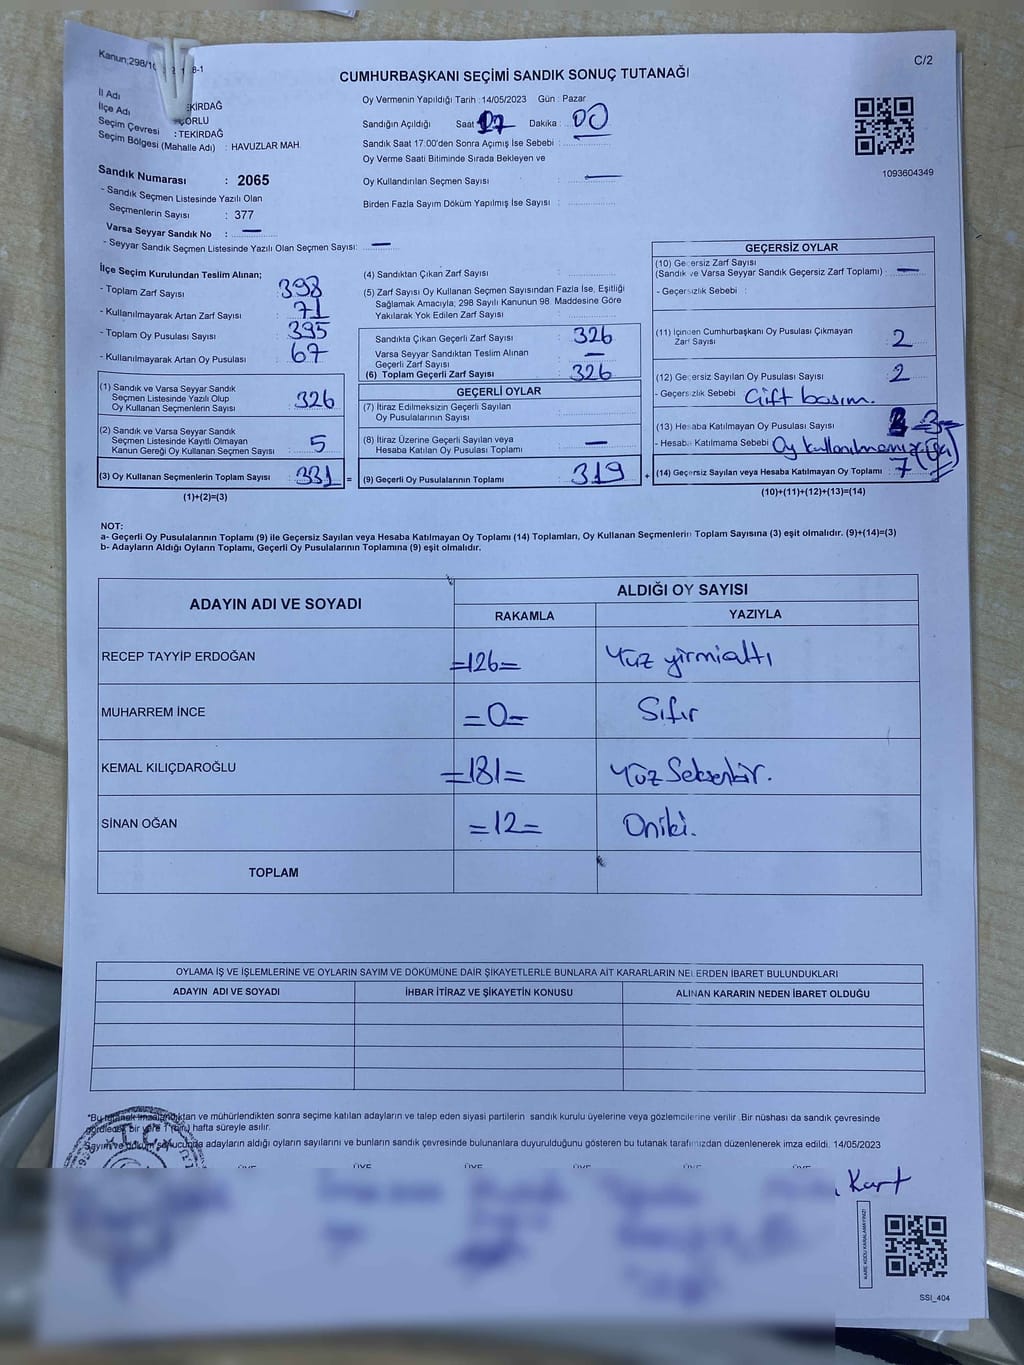 Kanun:298/10
8-1
C/2
CUMHURBAŞKANI SEÇİMİ SANDIK SONUÇ TUTANAĞI
İl Adı
EKİRDAĞ
İlçe Adı
ÇORLU
Seçim Çevresi : TEKİRDAĞ
Seçim Bölgesi (Mahalle Adı) : HAVUZLAR MAH.
Oy Vermenin Yapıldığı Tarih : 14/05/2023 Gün : Pazar
Sandığın Açıldığı Saat 17 Dakika : 00
Sandık Saat 17:00'den Sonra Açımış İse Sebebi :
Oy Verme Saati Bitiminde Sırada Bekleyen ve
Oy Kullandırılan Seçmen Sayısı : —
Birden Fazla Sayım Döküm Yapılmış İse Sayısı :
1093604349
Sandık Numarası : 2065
- Sandık Seçmen Listesinde Yazılı Olan
Seçmenlerin Sayısı : 377
Varsa Seyyar Sandık No : —
- Seyyar Sandık Seçmen Listesinde Yazılı Olan Seçmen Sayısı: —
İlçe Seçim Kurulundan Teslim Alınan;
- Toplam Zarf Sayısı : 398
- Kullanılmayarak Artan Zarf Sayısı : 71
- Toplam Oy Pusulası Sayısı : 395
- Kullanılmayarak Artan Oy Pusulası : 67
(1) Sandık ve Varsa Seyyar Sandık
Seçmen Listesinde Yazılı Olup
Oy Kullanan Seçmenlerin Sayısı : 326
(2) Sandık ve Varsa Seyyar Sandık
Seçmen Listesinde Kayıtlı Olmayan
Kanun Gereği Oy Kullanan Seçmen Sayısı : 5
(3) Oy Kullanan Seçmenlerin Toplam Sayısı : 331 =
(1)+(2)=(3)
(4) Sandıktan Çıkan Zarf Sayısı :
(5) Zarf Sayısı Oy Kullanan Seçmen Sayısından Fazla İse, Eşitliği
Sağlamak Amacıyla; 298 Sayılı Kanunun 98. Maddesine Göre
Yakılarak Yok Edilen Zarf Sayısı :
Sandıkta Çıkan Geçerli Zarf Sayısı : 326
Varsa Seyyar Sandıktan Teslim Alınan
Geçerli Zarf Sayısı : —
(6) Toplam Geçerli Zarf Sayısı : 326
GEÇERLİ OYLAR
(7) İtiraz Edilmeksizin Geçerli Sayılan
Oy Pusulalarının Sayısı :
(8) İtiraz Üzerine Geçerli Sayılan veya
Hesaba Katılan Oy Pusulası Toplamı : —
(9) Geçerli Oy Pusulalarının Toplamı : 319 +
GEÇERSİZ OYLAR
(10) Geçersiz Zarf Sayısı
(Sandık ve Varsa Seyyar Sandık Geçersiz Zarf Toplamı) : —
- Geçersizlik Sebebi :
(11) İçinden Cumhurbaşkanı Oy Pusulası Çıkmayan
Zarf Sayısı : 2
(12) Geçersiz Sayılan Oy Pusulası Sayısı : 2
- Geçersizlik Sebebi : Çift basım.
(13) Hesaba Katılmayan Oy Pusulası Sayısı : =3=
- Hesaba Katılmama Sebebi : Oy kullanılmamış
(14) Geçersiz Sayılan veya Hesaba Katılmayan Oy Toplamı : 7
(10)+(11)+(12)+(13)=(14)
NOT:
a- Geçerli Oy Pusulalarının Toplamı (9) ile Geçersiz Sayılan veya Hesaba Katılmayan Oy Toplamı (14) Toplamları, Oy Kullanan Seçmenlerin Toplam Sayısına (3) eşit olmalıdır. (9)+(14)=(3)
b- Adayların Aldığı Oyların Toplamı, Geçerli Oy Pusulalarının Toplamına (9) eşit olmalıdır.
ADAYIN ADI VE SOYADI
ALDIĞI OY SAYISI
RAKAMLA YAZIYLA
RECEP TAYYİP ERDOĞAN =126= Yüz yirmialtı
MUHARREM İNCE =0= Sıfır
KEMAL KILIÇDAROĞLU =181= Yüz Seksenbir.
SİNAN OĞAN =12= Oniki.
TOPLAM
OYLAMA İŞ VE İŞLEMLERİNE VE OYLARIN SAYIM VE DÖKÜMÜNE DAİR ŞİKAYETLERLE BUNLARA AİT KARARLARIN NELERDEN İBARET BULUNDUKLARI
ADAYIN ADI VE SOYADI İHBAR İTİRAZ VE ŞİKAYETİN KONUSU ALINAN KARARIN NEDEN İBARET OLDUĞU
*Bu tutanak imzalandıktan ve mühürlendikten sonra seçime katılan adayların ve talep eden siyasi partilerin sandık kurulu üyelerine veya gözlemcilerine verilir. Bir nüshası da sandık çevresinde
görülecek bir yere 1 (bir) hafta süreyle asılır.
Sayım ve döküm sonucunda adayların aldığı oyların sayılarını ve bunların sandık çevresinde bulunanlara duyurulduğunu gösteren bu tutanak tarafımızdan düzenlenerek imza edildi. 14/05/2023
ÜYE ÜYE ÜYE ÜYE ÜYE
Kart
KARE KODU KARALAMAYINIZ!
SSI_404